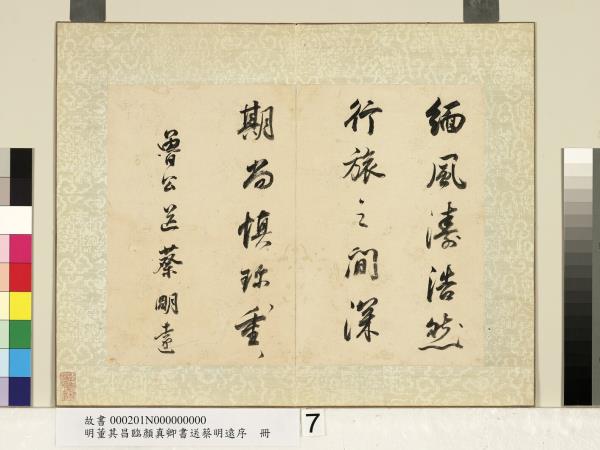 緬風濤浩然
行旅之間深
期尚慎珍重
魯公送蔡明遠
故書 000201N000000000
明董其昌臨顏真卿書送蔡明遠序 冊
7